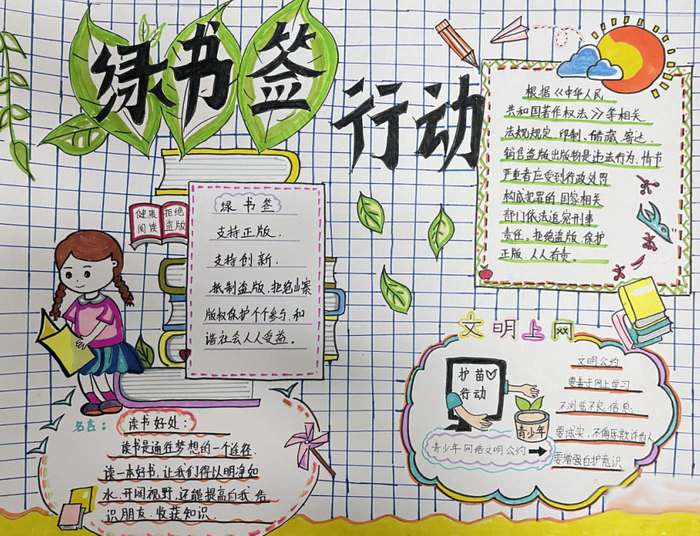 绿书签
行动
根据《中华人民
共和国著作权法》等相关
法规规定,印制、储藏、寄送、
销售盗版出版物是违法行为,情节
严重者应受到行政处罚
构成犯罪的 国家相关
部门依法追究刑事
责任,拒绝盗版,保护
正版,人人有责。
健康
阅读
拒绝
盗版
绿书签
支持正版.
支持创新.
抵制盗版.拒绝山寨
版权保护个个参与.和
谐社会人人受益.
文明上网
护苗
行动
青少年
青少年网络文明公约
文明公约
要善于网上学习
不浏览不良信息
要诚实,不侮辱欺诈他人
要增强自护意识
名言:
读书好处:
读书是通往梦想的一个途径
读一本好书,让我们得以明净如
水,开阔视野,还能提高自我 结
识朋友.收获知识.